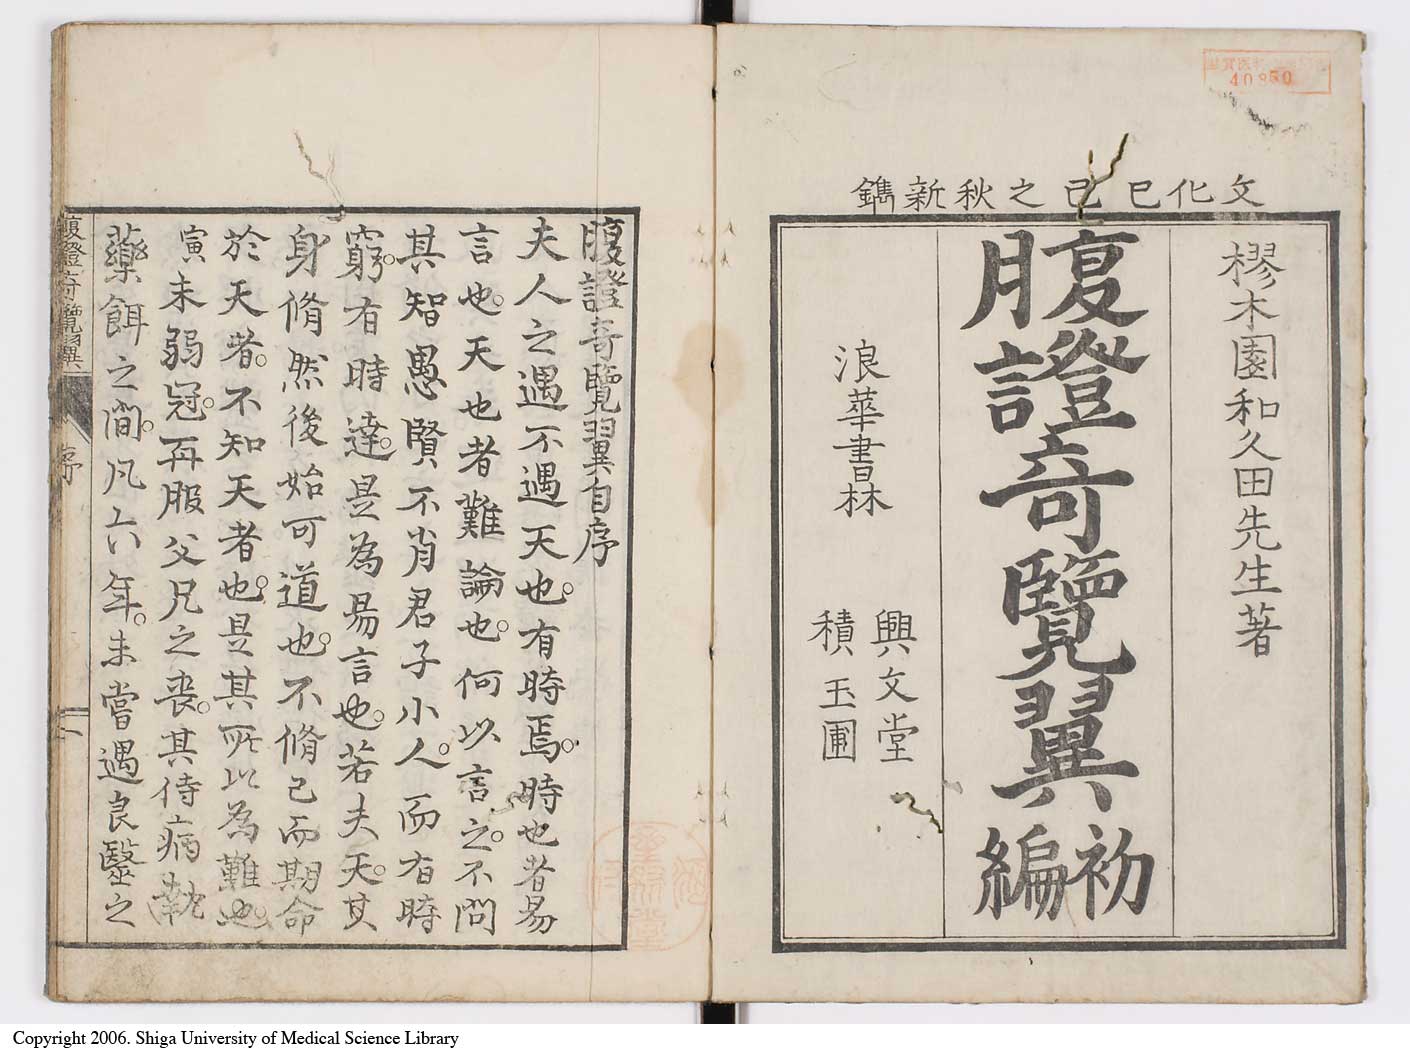 文化己巳之秋新鐫
樛木園和久田先生著
腹證奇覽翼初編
浪華書林
興文堂
積玉圃
40850
腹證奇覽翼自序
夫人之遇不遇天也。有時焉。時也者易
言也。天也者難論也。何以言之。不問
其智愚賢不肖君子小人。而有時
窮。有時達。是為易言也。若夫天。其
身脩然後始可道也。不脩己而期命
於天者。不知天者也。是其所以為難也。
寅未弱冠。再服父兄之喪。其侍病執
藥餌之間。凡六年。未嘗遇良醫之
腹證奇覽翼
序
一
Copyright 2006. Shiga University of Medical Science Library